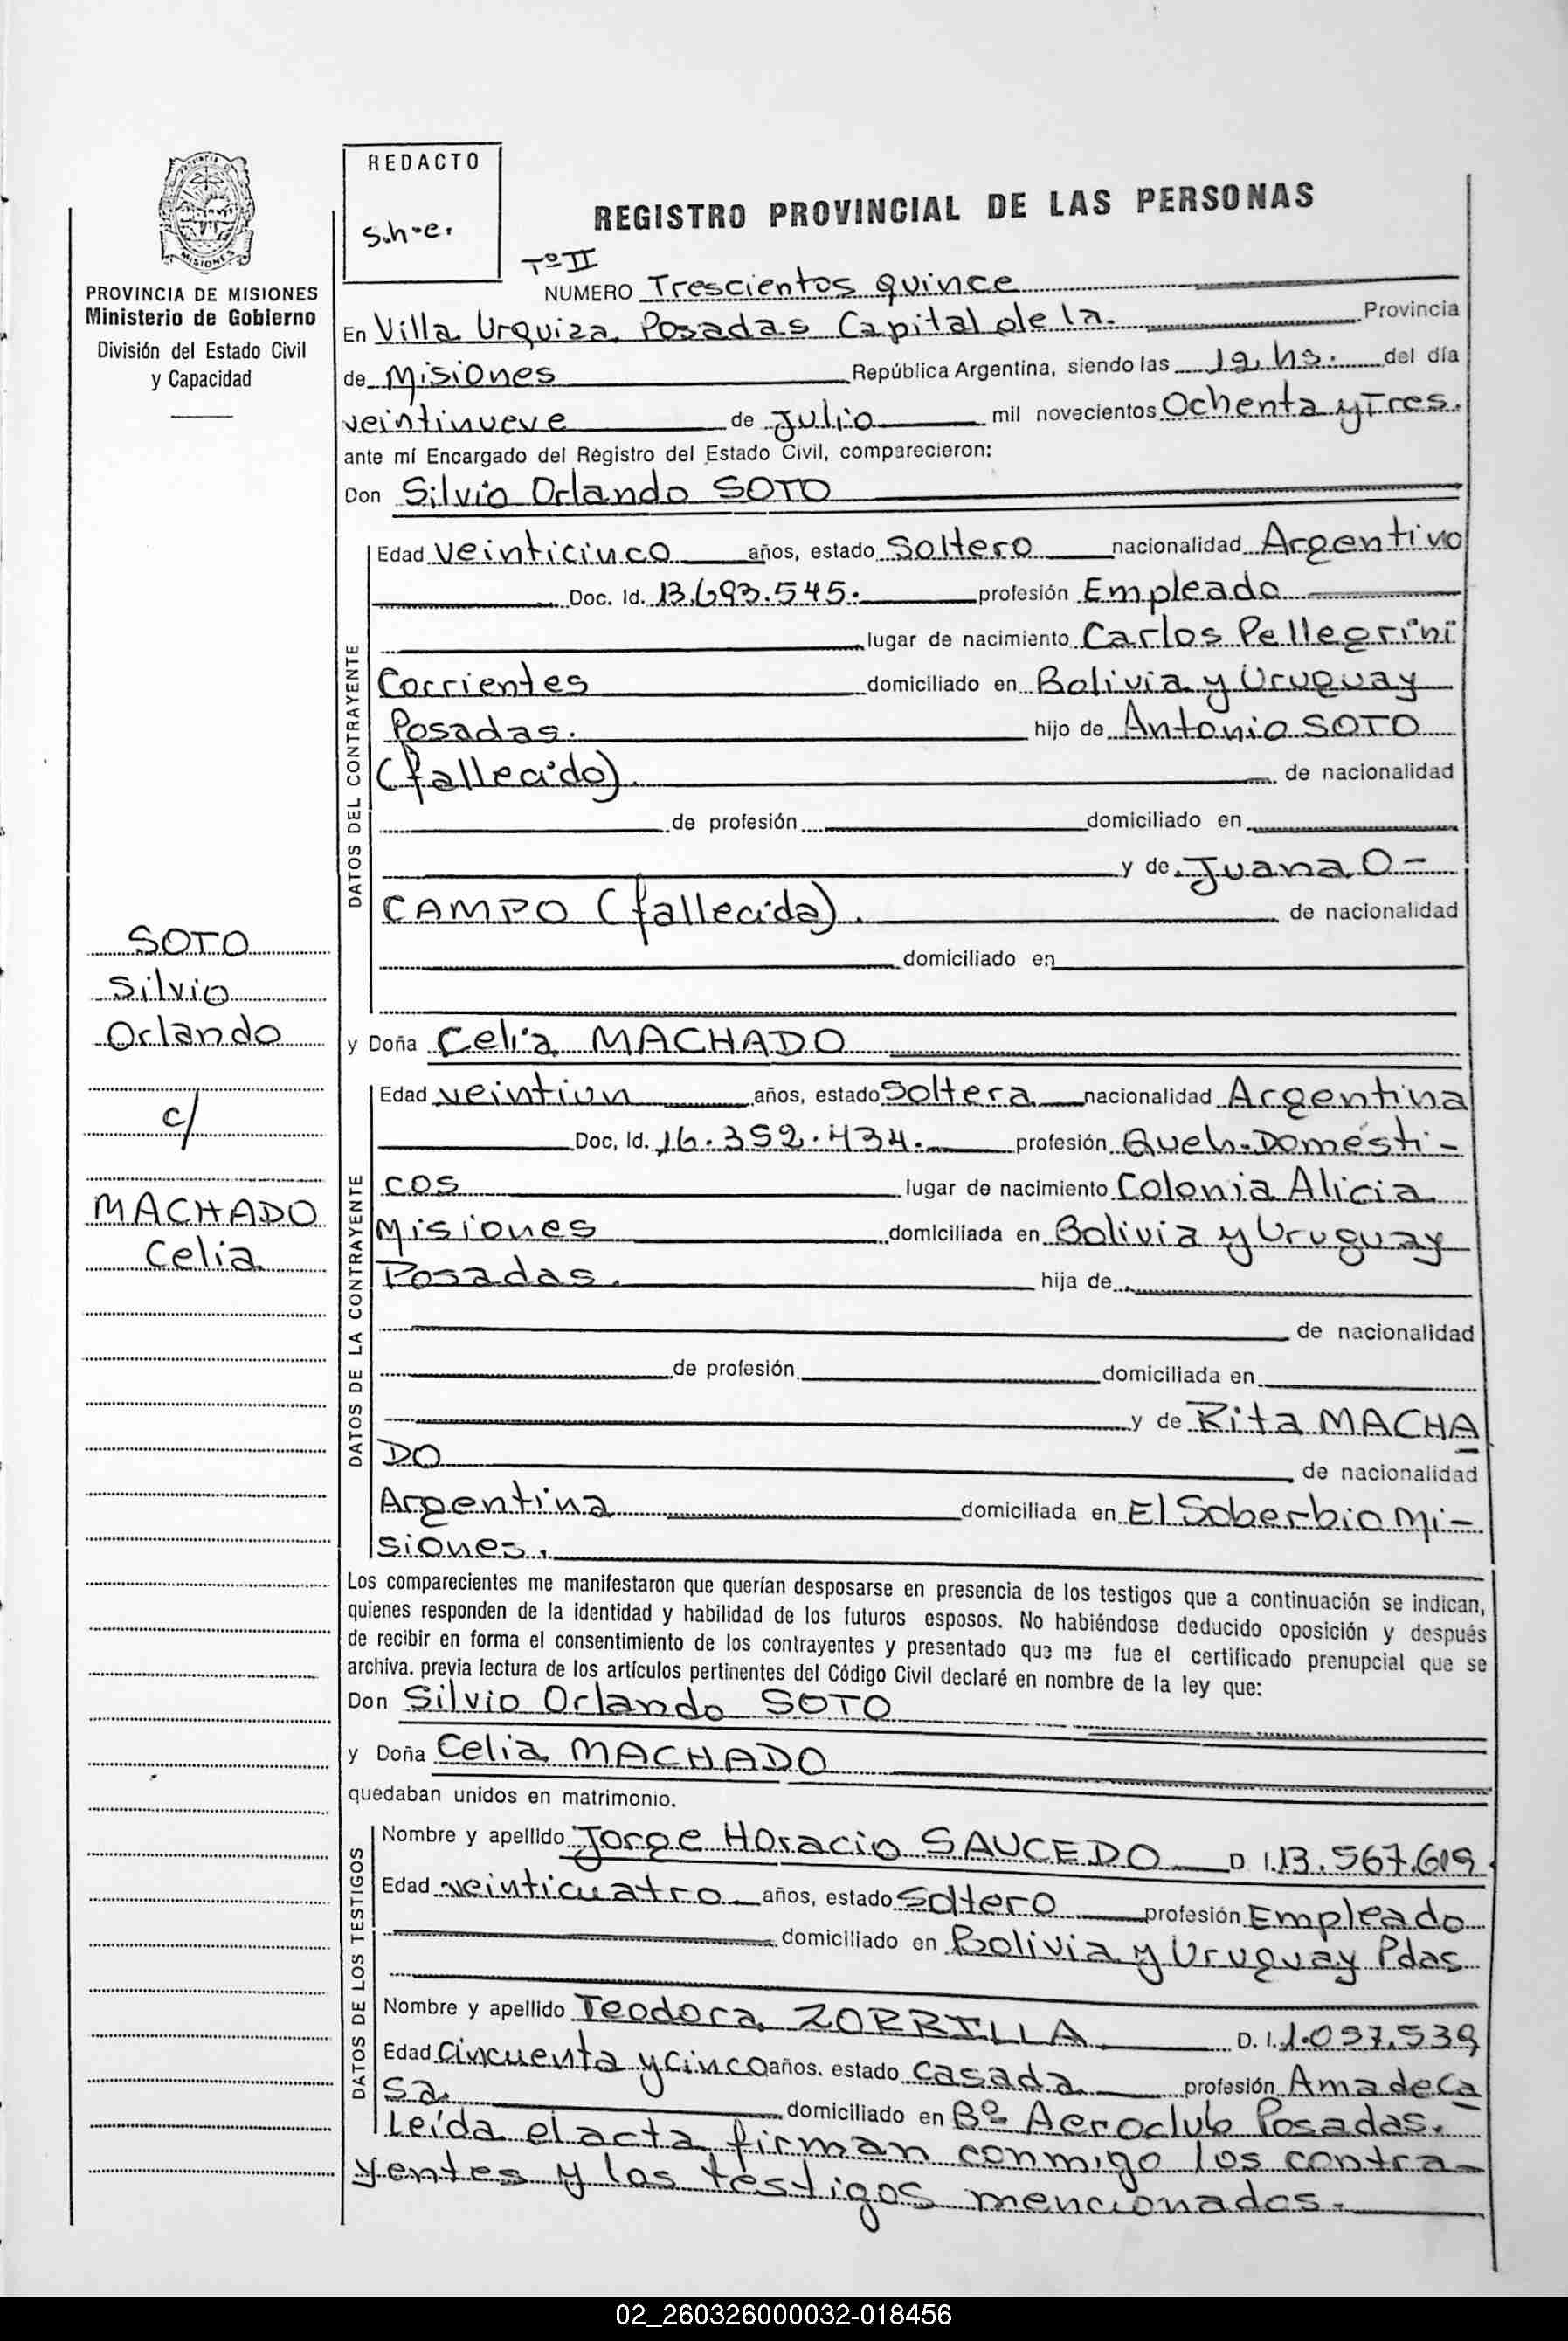 REDACTO
S.h-e.
REGISTRO PROVINCIAL DE LAS PERSONAS
Tº II
NUMERO Trescientos quince
PROVINCIA DE MISIONES
Ministerio de Gobierno
División del Estado Civil
y Capacidad
En Villa Urquiza, Posadas Capital de la. Provincia
de Misiones República Argentina, siendo las 12 hs. del día
veintinueve de Julio mil novecientos Ochenta y Tres.
ante mí Encargado del Registro del Estado Civil, comparecieron:
Don Silvio Orlando SOTO
DATOS DEL CONTRAYENTE
Edad veinticinco años, estado Soltero nacionalidad Argentino
Doc. Id. 13.693.545. profesión Empleado
lugar de nacimiento Carlos Pellegrini
Corrientes domiciliado en Bolivia y Uruguay
Posadas. hijo de Antonio SOTO
(fallecido). de nacionalidad
de profesión domiciliado en
y de Juana O-
CAMPO (fallecida). de nacionalidad
domiciliado en
SOTO
Silvio
Orlando
c/
MACHADO
Celia
y Doña Celia MACHADO
DATOS DE LA CONTRAYENTE
Edad veintiun años, estado Soltera nacionalidad Argentina
Doc, Id. 16.352.434. profesión Queh-Domésti-
cos lugar de nacimiento Colonia Alicia
Misiones domiciliada en Bolivia y Uruguay
Posadas. hija de
de nacionalidad
de profesión domiciliada en
y de Rita MACHA
DO de nacionalidad
Argentina domiciliada en El Soberbio Mi-
siones.
Los comparecientes me manifestaron que querían desposarse en presencia de los testigos que a continuación se indican,
quienes responden de la identidad y habilidad de los futuros esposos. No habiéndose deducido oposición y después
de recibir en forma el consentimiento de los contrayentes y presentado que me fue el certificado prenupcial que se
archiva. previa lectura de los artículos pertinentes del Código Civil declaré en nombre de la ley que:
Don Silvio Orlando SOTO
y Doña Celia MACHADO
quedaban unidos en matrimonio.
DATOS DE LOS TESTIGOS
Nombre y apellido Jorge Horacio SAUCEDO D I. 13.567.619
Edad veinticuatro años, estado Soltero profesión Empleado
domiciliado en Bolivia y Uruguay Pdas
Nombre y apellido Teodora ZORRILLA D. I. 1.097.539
Edad Cincuenta y Cinco años. estado casada profesión Ama de Ca
sa. domiciliado en Bº Aeroclub Posadas.
Leída el acta, firman conmigo los contra-
yentes y los testigos mencionados.
02_260326000032-018456